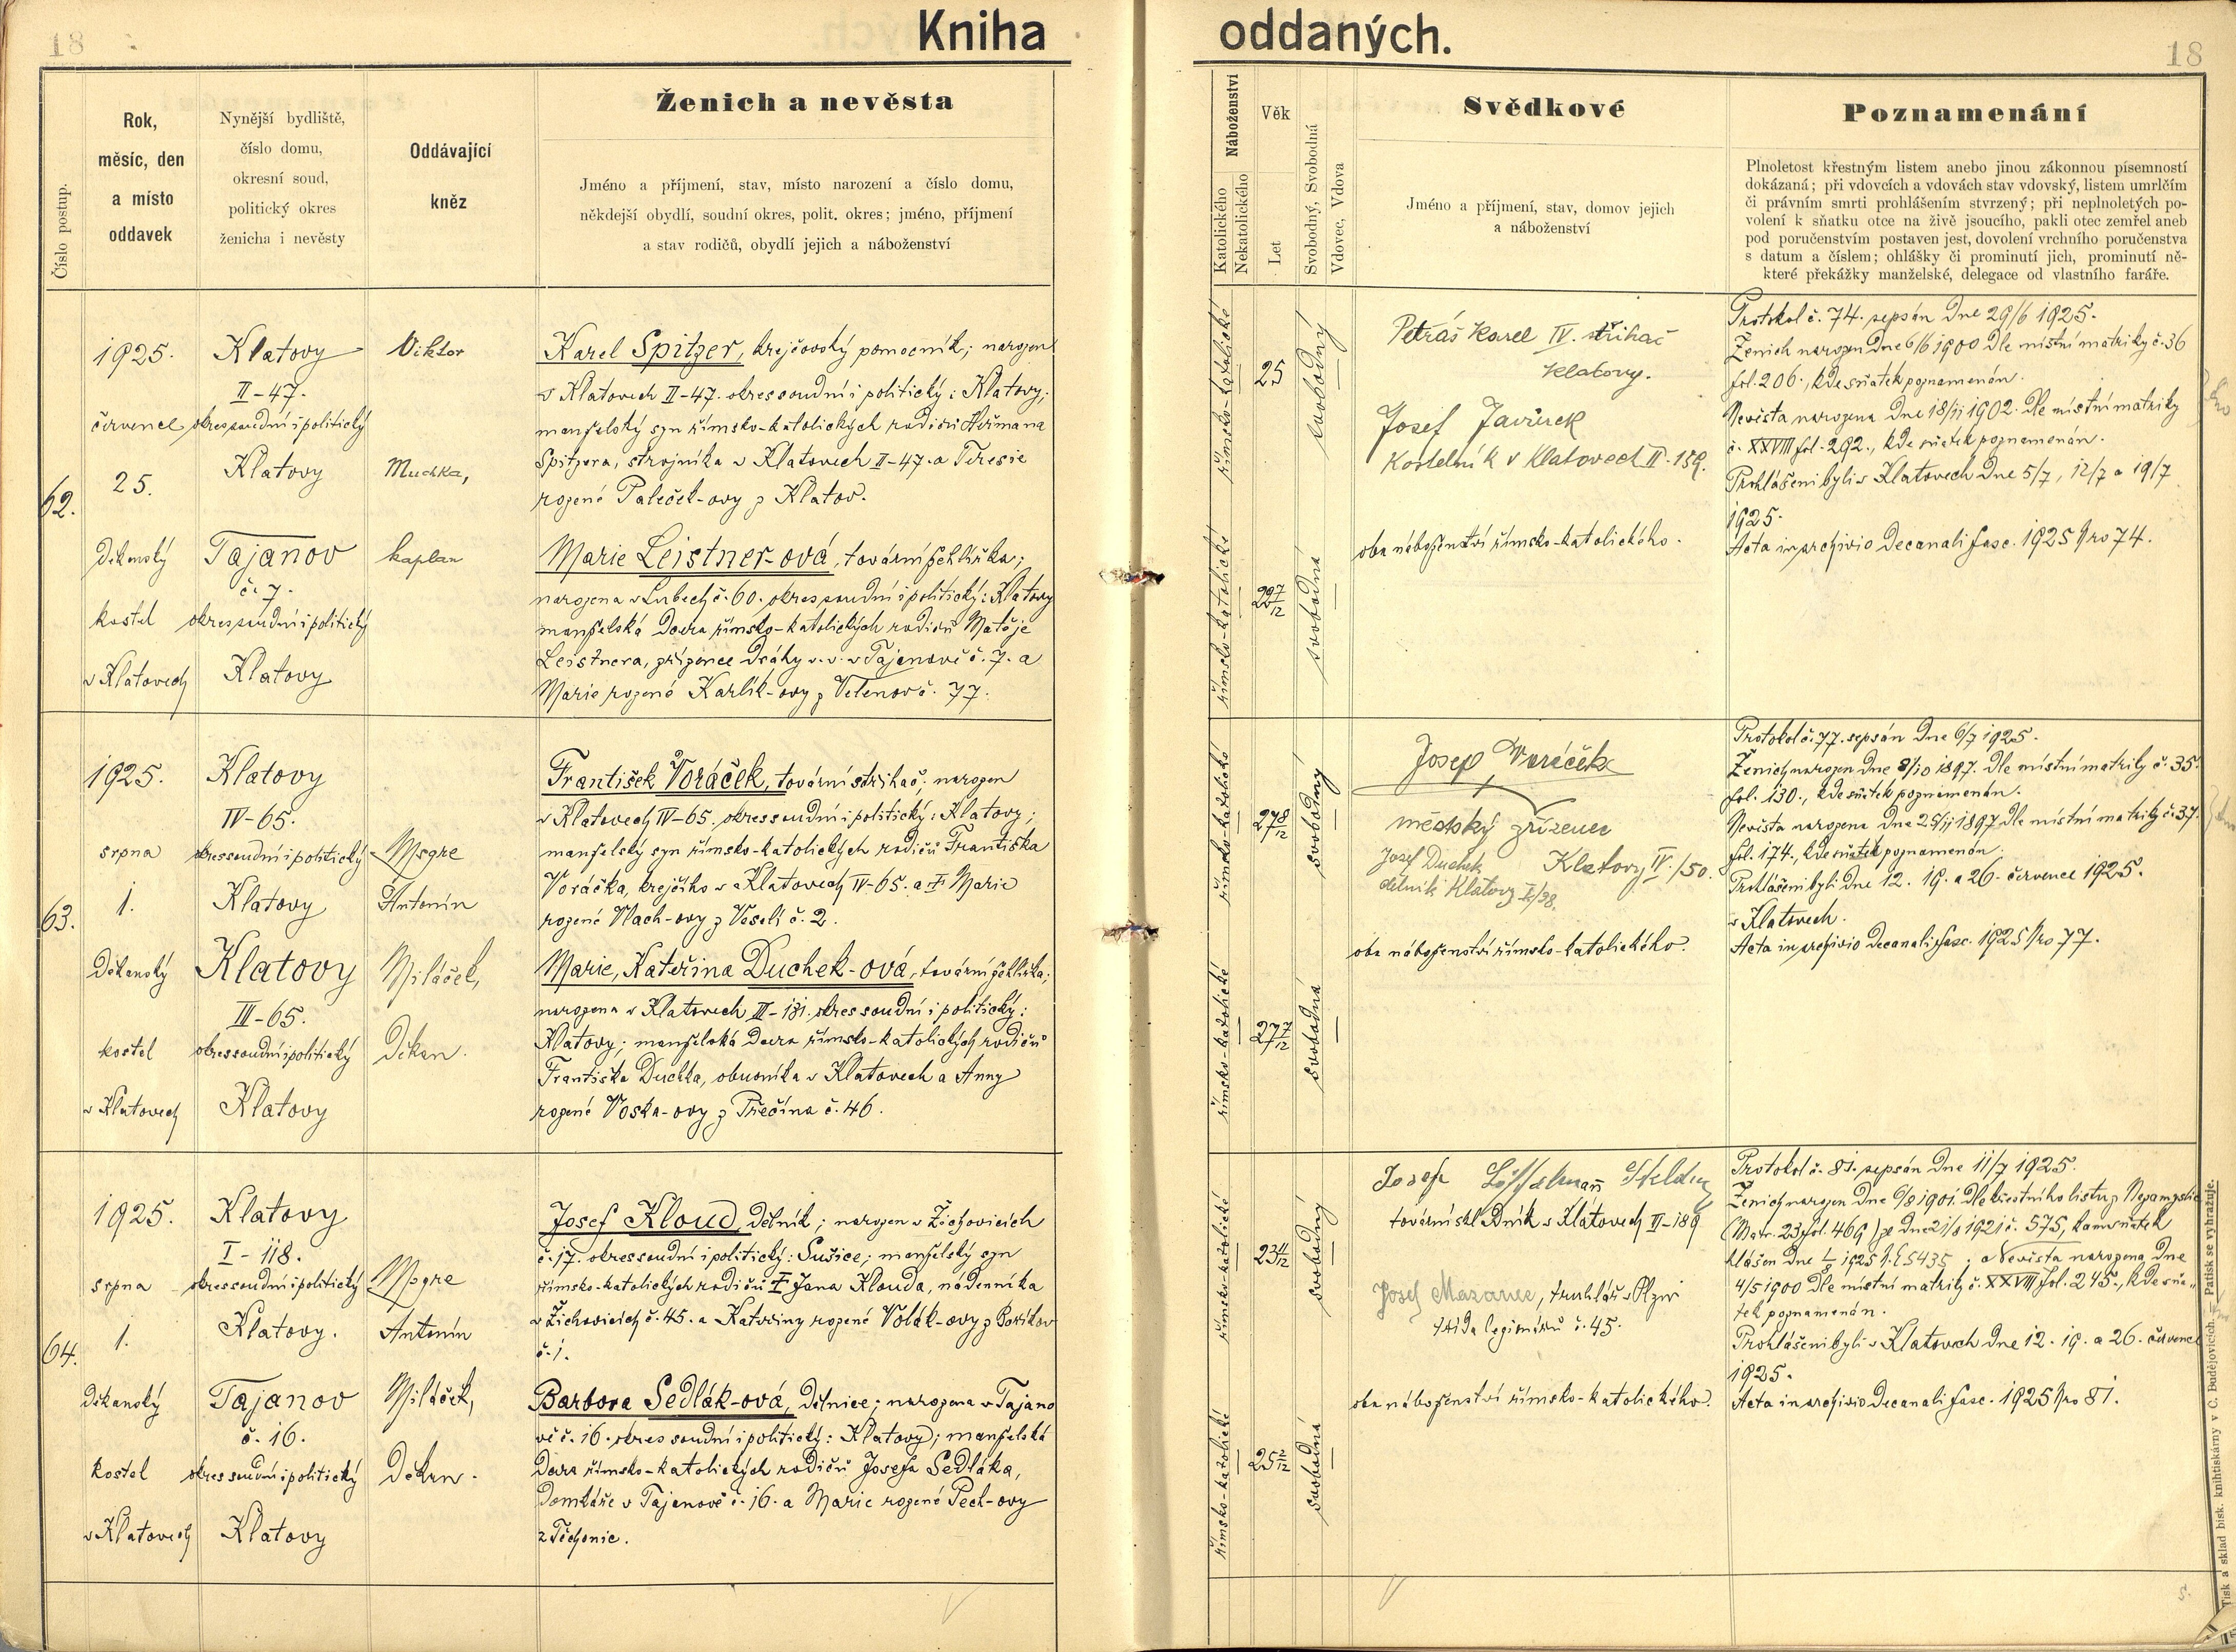 18
Kniha
Číslo postup.
Rok,
měsíc, den
a místo
oddavek
Nynější bydliště,
číslo domu,
okresní soud,
politický okres
ženicha i nevěsty
Oddávající
kněz
Ženich a nevěsta
Jméno a příjmení, stav, místo narození a číslo domu,
někdejší obydlí, soudní okres, polit. okres; jméno, příjmení
a stav rodičů, obydlí jejich a náboženství
62.
1925.
července
25.
Děkanský
kostel
v Klatovech
Klatovy
II-47.
okres soudní i politický
Klatovy
Tajanov
č. 7.
okres soudní i politický
Klatovy
Viktor
Muchka,
kaplan
Karel Spitzer, krejčovský pomocník; narozen
v Klatovech II-47. okres soudní i politický: Klatovy;
manželský syn římsko-katolických rodičů Heřmana
Spitzera, strojníka v Klatovech II-47. a Teresie
rozené Paleček-ovy z Klatov.
Marie Leistner-ová, tovární žehlířka;
narozena v Lubech č. 60. okres soudní i politický: Klatovy
manželská dcera římsko-katolických rodičů Matěje
Leistnera, zřízence dráhy v. v. v Tajanově č. 7. a
Marie rozené Karlík-ovy z Velenov č. 77.
63.
1925.
srpna
1.
Děkanský
kostel
v Klatovech
Klatovy
IV-65.
okres soudní i politický
Klatovy
Klatovy
III-65.
okres soudní i politický
Klatovy
Msgre
Antonín
Miláček,
Děkan.
František Voráček, tovární střihač; narozen
v Klatovech IV-65. okres soudní i politický: Klatovy;
manželský syn římsko-katolických rodičů Františka
Voráčka, krejčího v Klatovech IV-65. a † Marie
rozené Vlach-ovy z Veselí č. 2.
Marie, Kateřina Duchek-ová, tovární žehlířka;
narozena v Klatovech III-131. okres soudní i politický:
Klatovy; manželská dcera římsko-katolických rodičů
Františka Duchka, obuvníka v Klatovech a Anny
rozené Voska-ovy z Přečína č. 46.
64.
1925.
srpna
1.
Děkanský
kostel
v Klatovech
Klatovy
I-118.
okres soudní i politický
Klatovy.
Tajanov
č. 16.
okres soudní i politický
Klatovy
Msgre
Antonín
Miláček,
Děkan.
Josef Kloud, dělník; narozen v Žichovicích
č. 17. okres soudní i politický: Sušice; manželský syn
římsko-katolických rodičů † Jana Klouda, nádenníka
v Žichovicích č. 45. a Kateřiny rozené Volák-ovy z Boříkov
č. 1.
Barbora Sedlák-ová, dělnice; narozena v Tajano
vě č. 16. okres soudní i politický: Klatovy; manželská
dcera římsko-katolických rodičů Josefa Sedláka,
domkáře v Tajanově č. 16. a Marie rozené Pech-ovy
z Těchonic.
oddaných.
18
Náboženství
Katolického
Nekatolického
Věk
Let
Svobodný, Svobodná
Vdovec, Vdova
Svědkové
Jméno a příjmení, stav, domov jejich
a náboženství
Poznamenání
Plnoletost křestným listem anebo jinou zákonnou písemností
dokázaná; při vdovcích a vdovách stav vdovský, listem umrlčím
či právním smrti prohlášením stvrzený; při neplnoletých po-
volení k sňatku otce na živě jsoucího, pakli otec zemřel aneb
pod poručenstvím postaven jest, dovolení vrchního poručenstva
s datum a číslem; ohlášky či prominutí jich, prominutí ně-
které překážky manželské, delegace od vlastního faráře.
římsko-katolické
25
svobodný
římsko-katolické
22 7/12
svobodná
Petráš Karel IV. střihač
Klatovy.
Josef Javůrek
Kostelník v Klatovech II. 159.
oba náboženství římsko-katolického.
Protokol č. 74. sepsán dne 29/6 1925.
Ženich narozen dne 6/6 1900 dle místní matriky č. 36
fol. 206., kde sňatek poznamenán.
Nevěsta narozena dne 18/11 1902. dle místní matriky
č. XXVIII fol. 292., kde sňatek poznamenán.
Prohlášeni byli v Klatovech dne 5/7, 12/7 a 19/7
1925.
Acta in archivio decanali fasc. 1925 Nro 74.
římsko-katolické
27 8/12
svobodný
římsko-katolické
27 7/12
svobodná
Josef Voráček
městský zřízenec
Klatovy IV./50.
Josef Duchek
dělník Klatovy
oba náboženství římsko-katolického.
Protokol č. 77. sepsán dne 6/7 1925.
Ženich narozen dne 8/10 1897. dle místní matriky č. 35.
fol. 130., kde sňatek poznamenán.
Nevěsta narozena dne 25/11 1897 dle místní matriky č. 37.
fol. 174., kde sňatek poznamenán.
Prohlášeni byli dne 12. 19. a 26. července 1925.
v Klatovech.
Acta in archivio decanali fasc. 1925 Nro 77.
římsko-katolické
23 11/12
svobodný
římsko-katolické
25 2/12
svobodná
Josef
tovární skladník v Klatovech II-189
Josef Mazanec, truhlář v Plzni
třída legionářů č. 45.
oba náboženství římsko-katolického.
Protokol č. 81. sepsán dne 11/7 1925.
Ženich narozen dne 6/8 1901. dle křestního listu z Nezamyslic
(Matr. 23 fol. 469) ze dne 21/8 1921 č. 575, kam sňatek
hlášen dne 1/8 1925 č. 5435; a Nevěsta narozena dne
4/5 1900 dle místní matriky č. XXVIII fol. 245., kde sňa-
tek poznamenán.
Prohlášeni byli v Klatovech dne 12. 19. a 26. července
1925.
Acta in archivio decanali fasc. 1925 Nro 81.
Tisk a sklad bisk. knihtiskárny v Č. Budějovicích. — Patisk se vyhražuje.